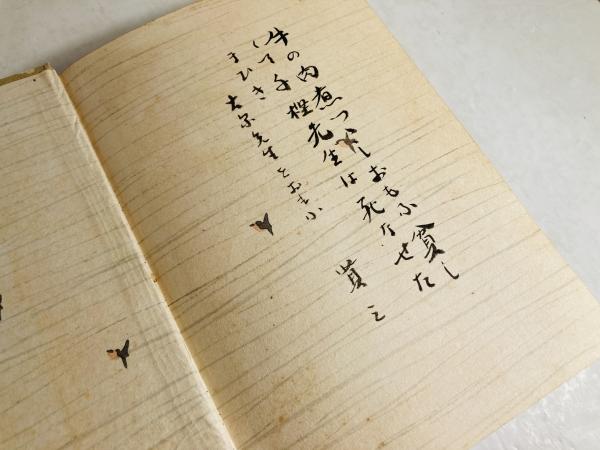 牛の肉煮つゝしおもふ貧し
くて千樫先生は死なせた
まひき 古泉先生をおもふ